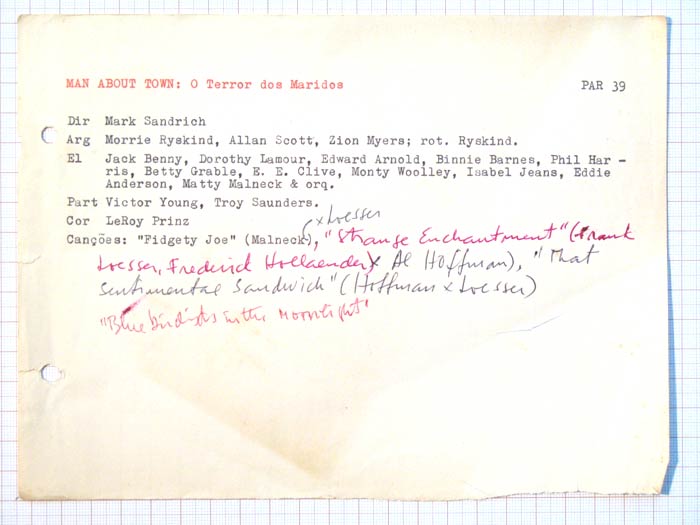 MAN ABOUT TOWN: O Terror dos Maridos PAR 39
Dir Mark Sandrich
Arg Morrie Ryskind, Allan Scott, Zion Myers; rot. Ryskind.
El Jack Benny, Dorothy Lamour, Edward Arnold, Binnie Barnes, Phil Har -
ris, Betty Grable, E. E. Clive, Monty Woolley, Isabel Jeans, Eddie
Anderson, Matty Malneck & orq.
Part Victor Young, Troy Saunders.
Cor LeRoy Prinz
x Loesser
Canções: "Fidgety Joe" (Malneck), "Strange Enchantment" (Frank
Loesser, Frederick Hollaender x Al Hoffman), "That
sentimental Sandwich" (Hoffman x Loesser)
"Bluebirds in the Moonlight"